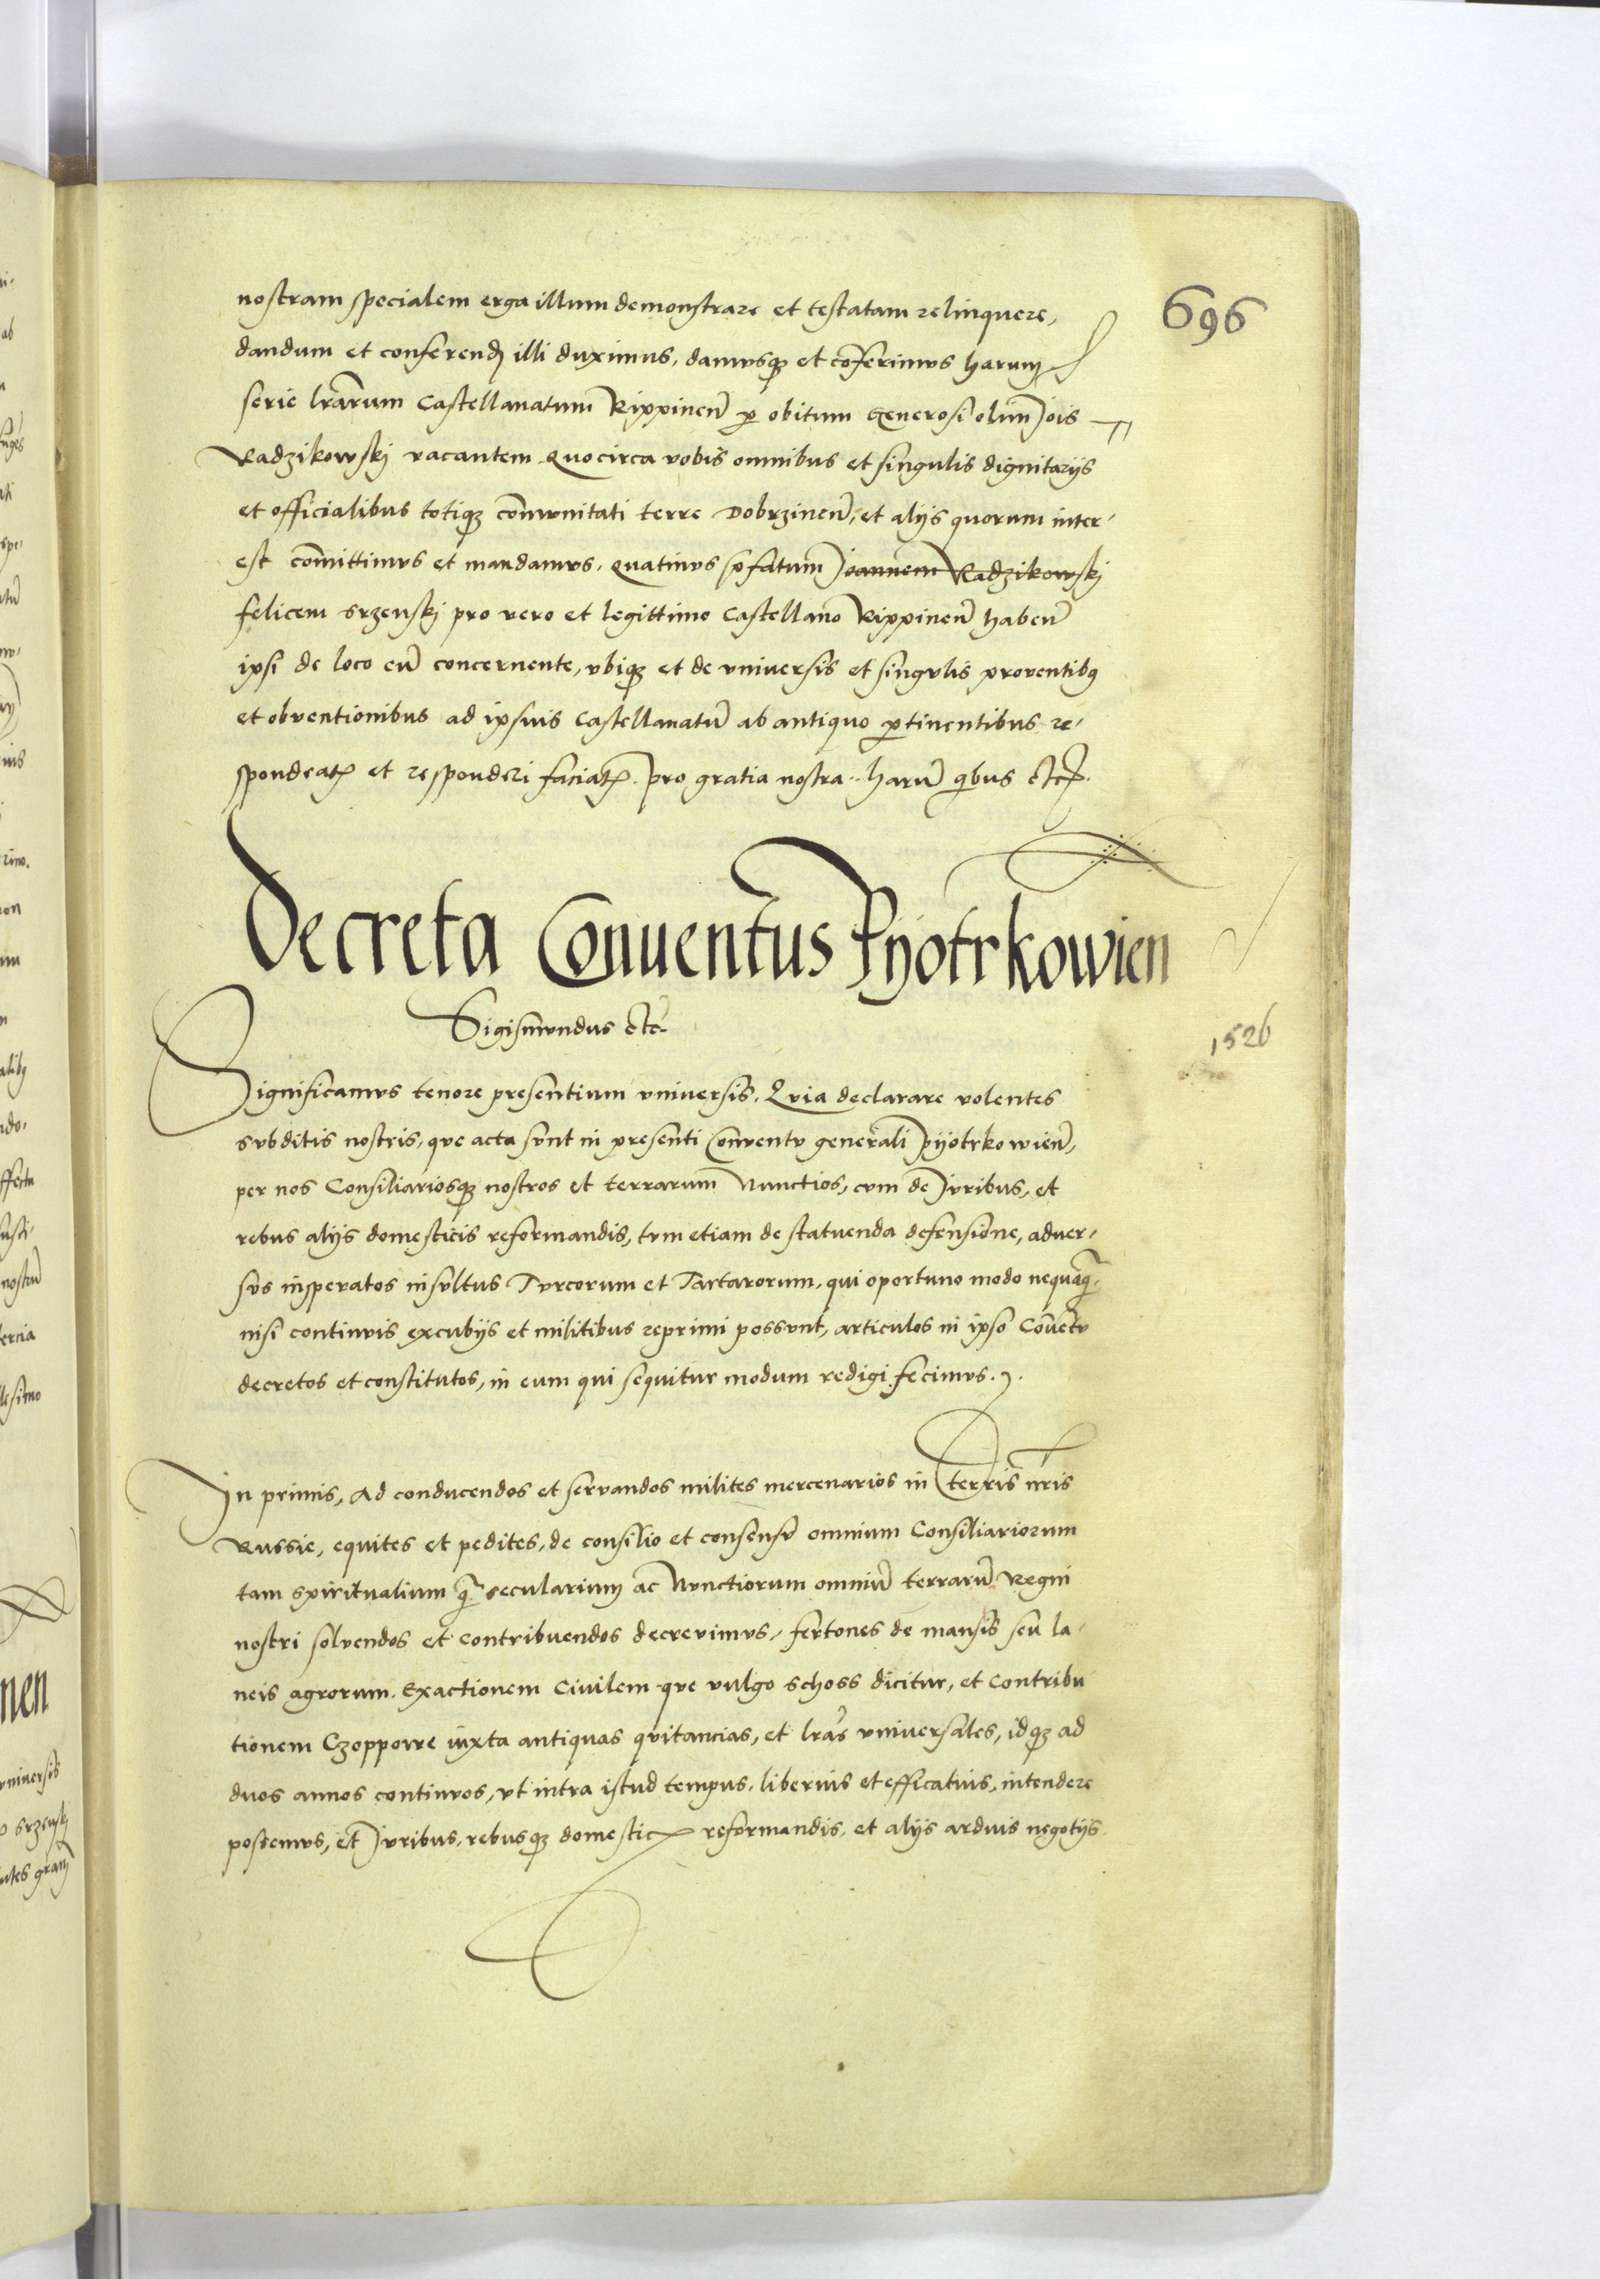 696
nostram specialem erga illum demonstrare et testatam relinquere,
dandum et conferend illi duximus, damusq et cōferimus harum
serie lrārum Castellanatum Rippinen̄ p obitum Generosi olim Jois
Radzikowskj vacantem. Quocirca vobis omnibus et singulis dignitarijs
et officialibus totiq com̄unitati terre Dobrzinen̄, et alijs quorum inter-
est com̄ittimus et mandamus. Quatinus p̄fatum Joannem Radzikowskj
felicem Srzenskj pro vero et legittimo Castellano Rippinen̄ haben̄
ipsi de loco eū concernente, vbiq et de vniuersis et singulis prouentibq
et obuentionibus ad ipsius Castellanatū ab antiquo ptinentibus re-
spondeatȝ et responderi faciatȝ. pro gratia nostra. harū qbus etc.
Decreta Conuentus Pyotrkowien
Sigismundus etc.
1526
Significamus tenore presentium vniuersis. Quia declarare volentes
subditis nostris, que acta sunt in presenti Conuentu generali Pyotrkowien̄,
per nos Consiliariosq nostros et terrarum Nunctios, cum de Juribus, et
rebus alijs domesticis reformandis, tum etiam de statuenda defensione, aduer-
sus insperatos insultus Turcorum et Tartarorum, qui oportuno modo nequāq,
nisi continuis excubijs et militibus reprimi possunt, articulos in ipso Cōuētu
decretos et constitutos, in eum qui sequitur modum redigi fecimus.
In primis, Ad conducendos et seruandos milites mercenarios in terris nr̄is
Russie, equites et pedites, de consilio et consensu omnium Consiliariorum
tam spiritualium q̄ secularium ac Nunctiorum omniū terrarū Regni
nostri soluendos et contribuendos decreuimus, fertones de mansis seu la-
neis agrorum. Exactionem Ciuilem que vulgo schoss dicitur, et Contribu
tionem Czopporre iuxta antiquas quitancias, et lrās vniuersales, idq ad
duos annos continuos, vt intra istud tempus, liberius et efficatius, intendere
possemus, et Juribus, rebusq domestic reformandis, et alijs arduis negotijs